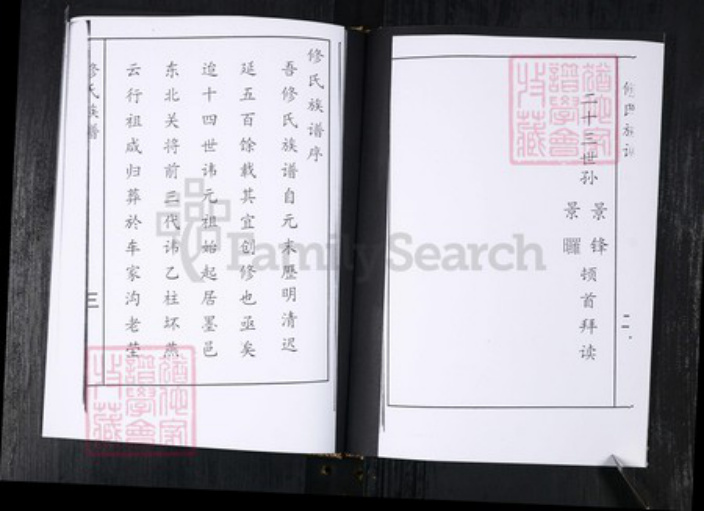 二十三世孙 景锋 顿首拜读
景曜
二
修氏族谱序
吾修氏族谱自元末歷明清迟
延五百馀载其宜创修也亟矣
迨十四世讳元祖始起居墨邑
东北关将前三代讳乙柱坏燕
云行祖咸归葬於车家沟老茔
修氏族谱
三
FamilySearch